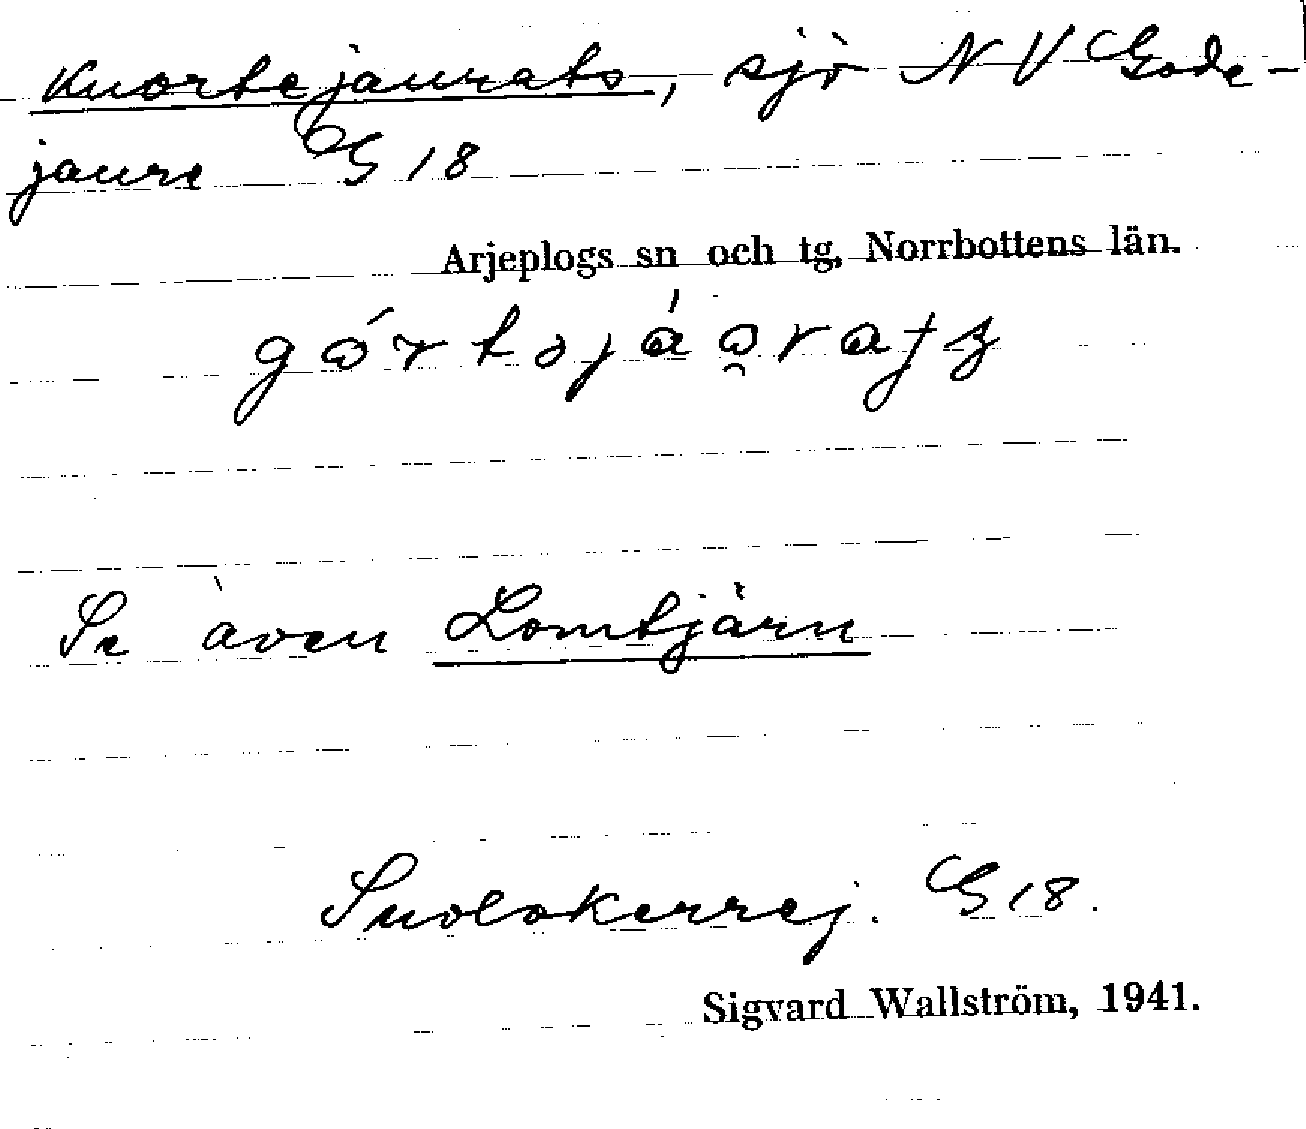 Kuortejaurats, sjö NV Gode-
jaure G 18
Arjeplogs sn och tg, Norrbottens län.
Se även Lomtjärn
Suolokerrej. G 18.
Sigvard Wallström, 1941.